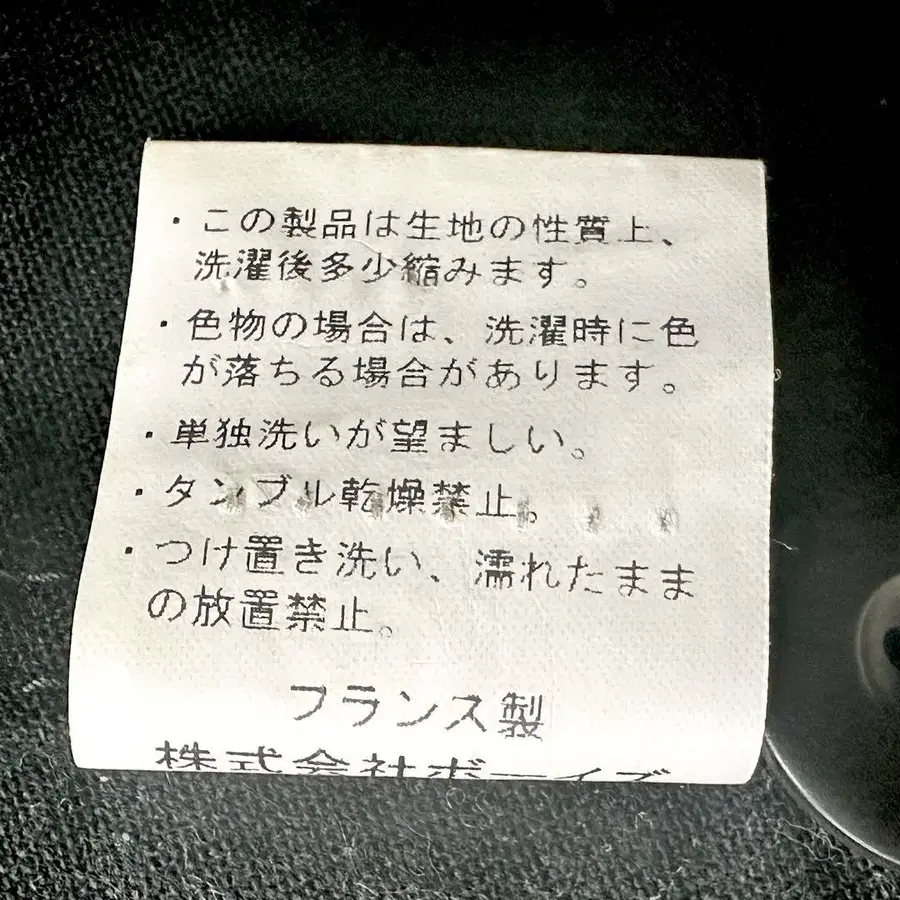 ・この製品は生地の性質上、
洗濯後多少縮みます。
・色物の場合は、洗濯時に色
が落ちる場合があります。
・単独洗いが望ましい。
・タンブル乾燥禁止。
・つけ置き洗い、濡れたまま
の放置禁止。
フランス製
株式会社ボーイズ